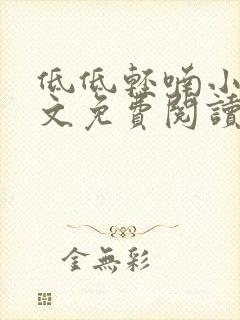 低低輕喃小
文免費閱讀
金無彩